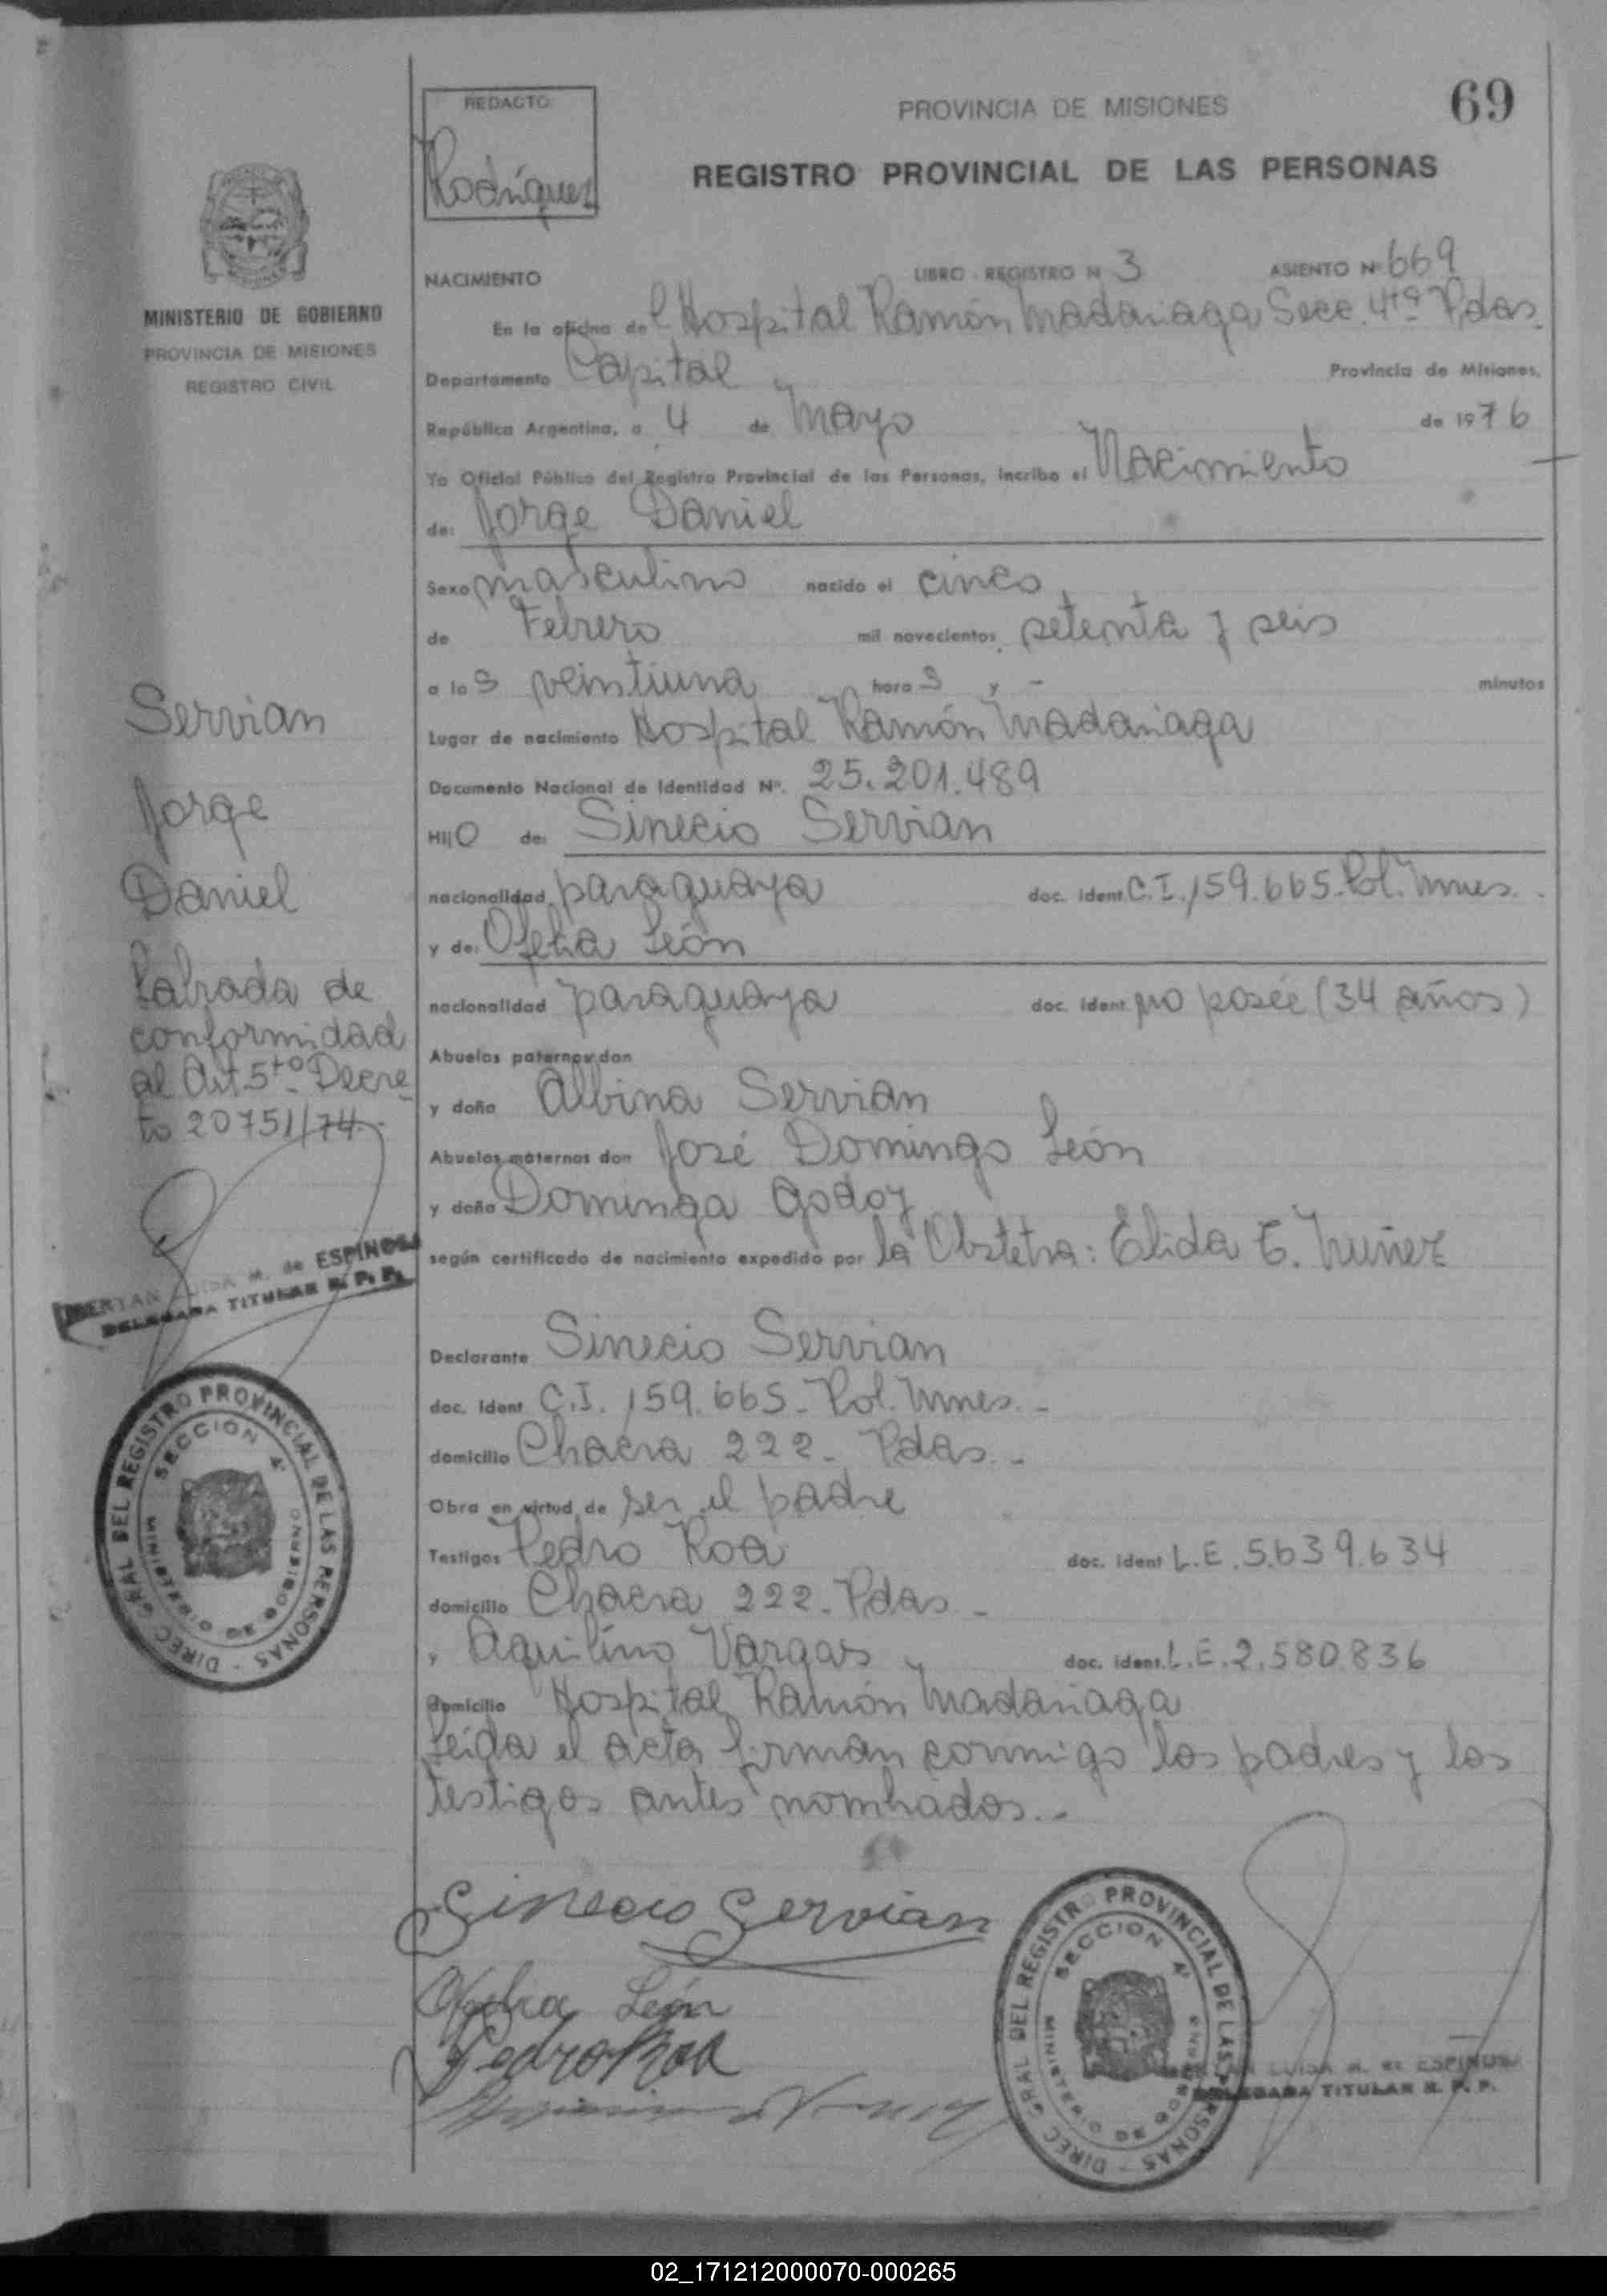 69
REDACTO
Rodríguez
PROVINCIA DE MISIONES
REGISTRO PROVINCIAL DE LAS PERSONAS
MINISTERIO DE GOBIERNO
PROVINCIA DE MISIONES
REGISTRO CIVIL
NACIMIENTO LIBRO - REGISTRO N 3 ASIENTO Nº 669
En la oficina del Hospital Ramón Madariaga Secc. 4ta Pdas.
Departamento Capital Provincia de Misiones,
República Argentina, a 4 de Mayo de 1976
Yo Oficial Público del Registro Provincial de las Personas, incribo el Nacimiento
de: Jorge Daniel
Sexo masculino nacido el cinco
de Febrero mil novecientos setenta y seis
a las veintiuna horas y - minutos
Lugar de nacimiento Hospital Ramón Madariaga
Documento Nacional de Identidad Nº. 25.201.489
Hijo de: Sinecio Servian
nacionalidad paraguaya doc. ident. C.I. 159.665. Pol. Mnes.
y de: Ofelia León
nacionalidad paraguaya doc. ident. no posée (34 años)
Abuelos paternos don
y doña Albina Servian
Abuelos maternos don José Domingo León
y doña Dominga Godoy
según certificado de nacimiento expedido por la Obstetra: Elida E. Nuñez
Declarante Sinecio Servian
doc. ident C.I. 159.665 - Pol. Mnes. -
domicilio Chacra 222 - Pdas. -
Obra en virtud de ser el padre
Testigos Pedro Roa doc. ident L.E. 5.639.634
domicilio Chacra 222 - Pdas -
y Aquilino Vargas doc. ident. L.E. 2.580.836
domicilio Hospital Ramón Madariaga
Leída el acta firman conmigo los padres y los
testigos antes nombrados. -
Servian
Jorge
Daniel
Labrada de
conformidad
al Art. 5to. Decre
to 20751/74
LUISA M. de ESPINOSA
DELEGADA TITULAR R. P. P.
DIREC. GRAL. DEL REGISTRO PROVINCIAL DE LAS PERSONAS -
SECCION 4ª
MINISTERIO DE GOBIERNO
Sinecio Servian
Ofelia León
Pedro Roa
DIREC. GRAL. DEL REGISTRO PROVINCIAL DE LAS PERSONAS -
SECCION 4ª
MINISTERIO DE GOBIERNO
LUISA M. de ESPINOSA
DELEGADA TITULAR R. P. P.
02_171212000070-000265